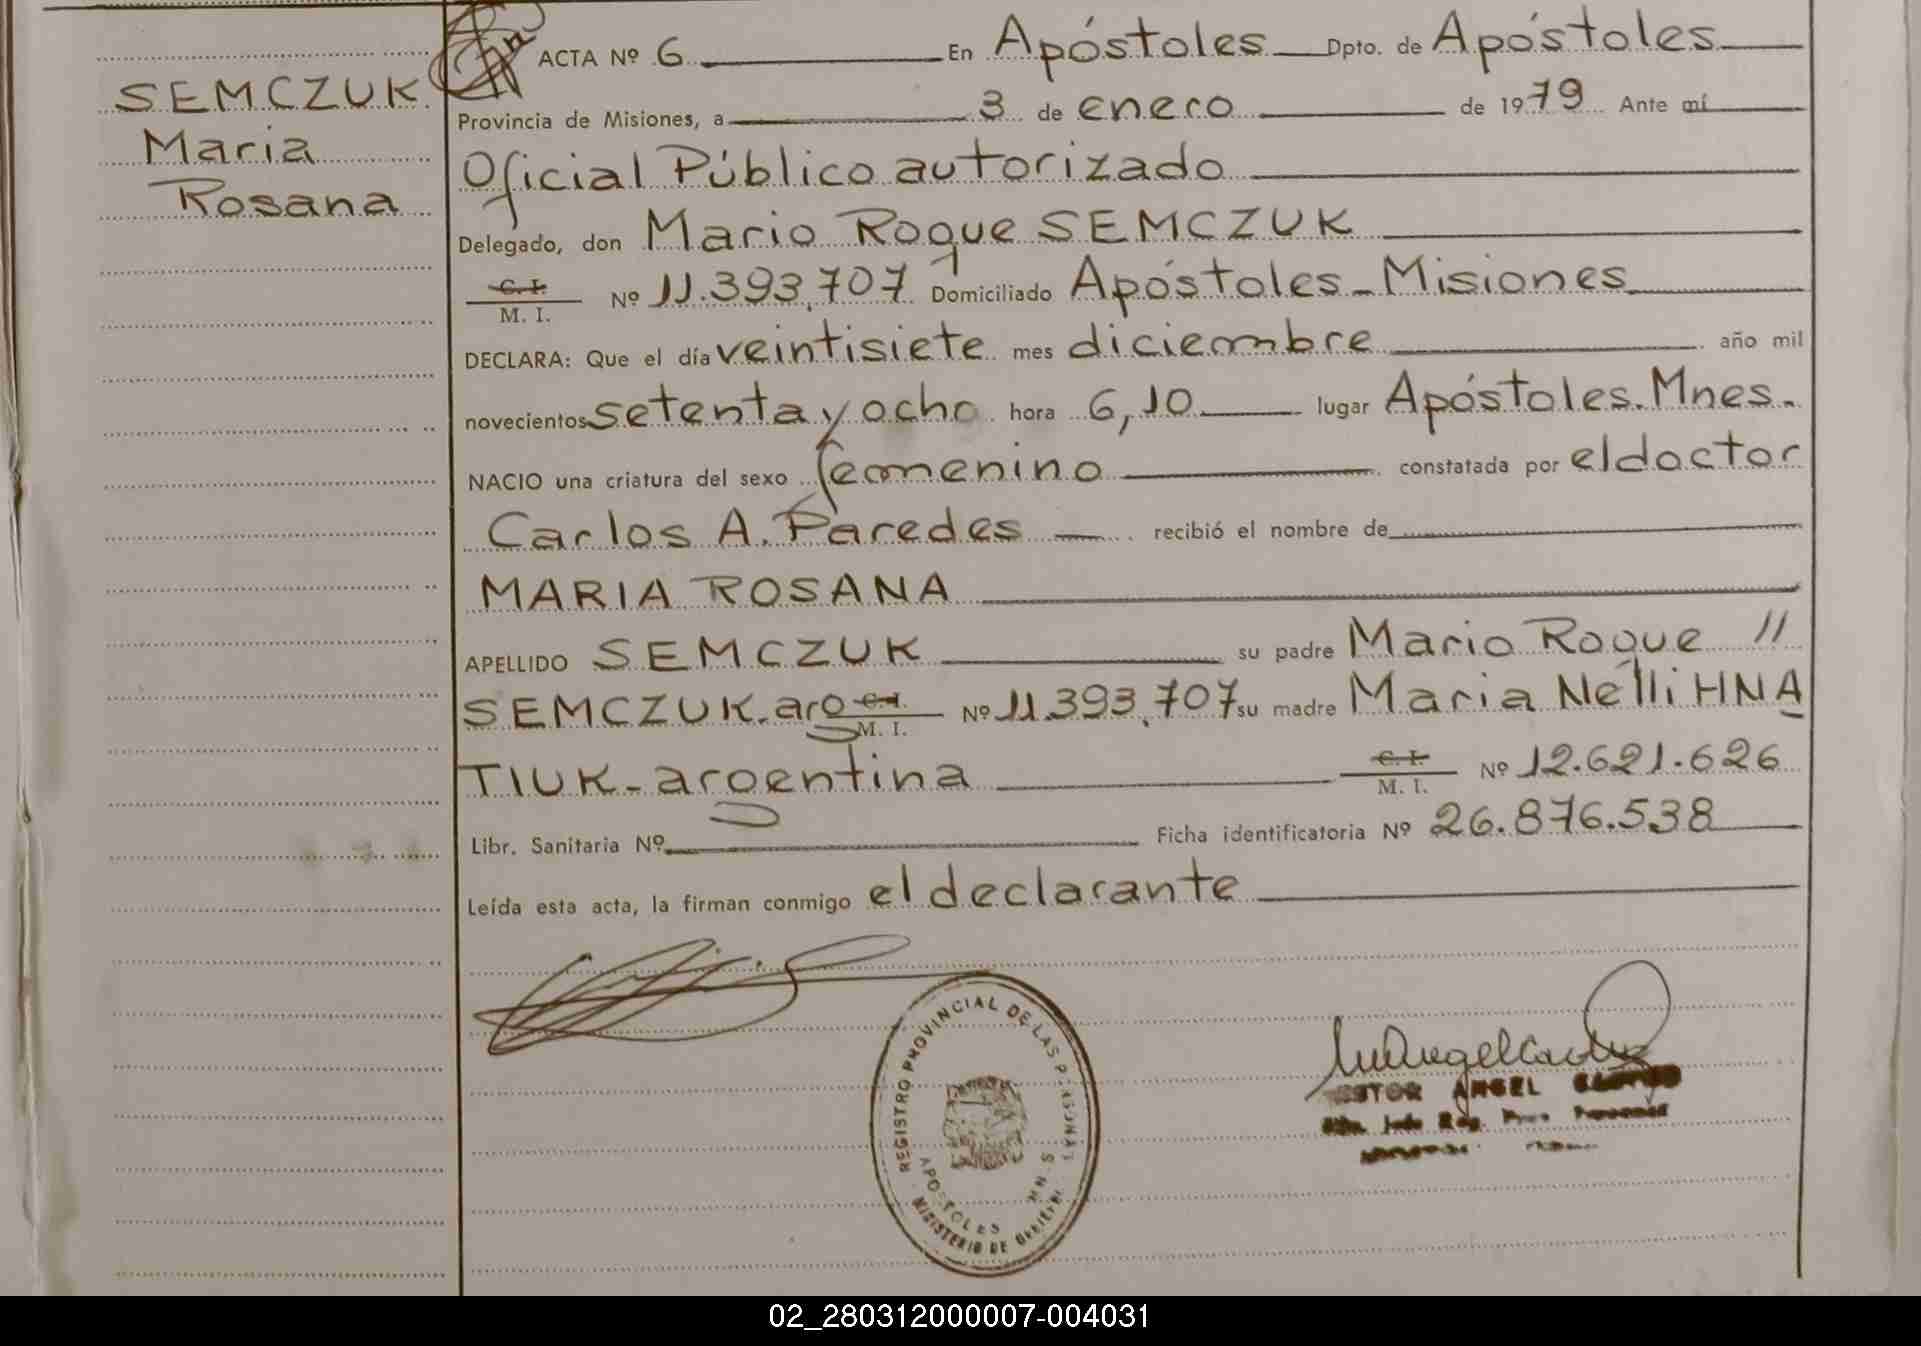 SEMCZUK
Maria
Rosana
ACTA Nº 6 En Apóstoles Dpto. de Apóstoles
Provincia de Misiones, a 3 de enero de 1979 Ante mí
Oficial Público autorizado
Delegado, don Mario Roque SEMCZUK
C. I.
M. I. Nº 11.393.707 Domiciliado Apóstoles - Misiones
DECLARA: Que el día veintisiete mes diciembre año mil
novecientos setenta y ocho hora 6,10 lugar Apóstoles. Mnes.
NACIO una criatura del sexo femenino constatada por el doctor
Carlos A. Paredes recibió el nombre de
MARIA ROSANA
APELLIDO SEMCZUK su padre Mario Roque //
SEMCZUK-arg C. I. M. I. Nº 11.393.707 su madre Maria Nélli HNA
TIUK - argentina C. I. M. I. Nº 12.621.626
Libr. Sanitaria Nº Ficha identificatoria Nº 26.876.538
Leída esta acta, la firman conmigo el declarante
REGISTRO PROVINCIAL DE LAS PERSONAS
APOSTOLES MNES
MINISTERIO DE GOBIERNO
ANGEL
02_280312000007-004031